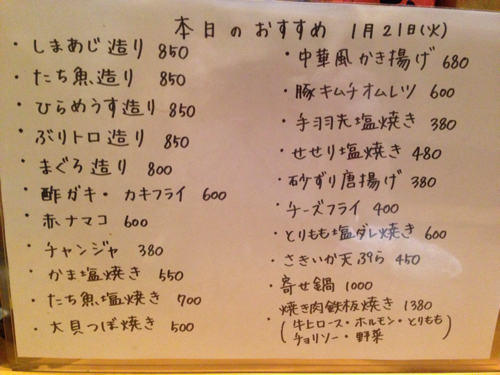 本日のおすすめ 1月21日(火)
・しまあじ造り 850
・たち魚造り 850
・ひらめうす造り 850
・ぶりトロ造り 850
・まぐろ造り 800
・酢ガキ・カキフライ 600
・赤ナマコ 600
・チャンジャ 380
・かま塩焼き 550
・たち魚塩焼き 700
・大貝つぼ焼き 500
・中華風かき揚げ 680
・豚キムチオムレツ 600
・手羽先塩焼き 380
・せせり塩焼き 480
・砂ずり唐揚げ 380
・チーズフライ 400
・とりもも塩ダレ焼き 600
・さきいか天ぷら 450
・寄せ鍋 1000
・焼き肉鉄板焼き 1380
(牛ヒロース・ホルモン・とりもも
チョリソー・野菜)